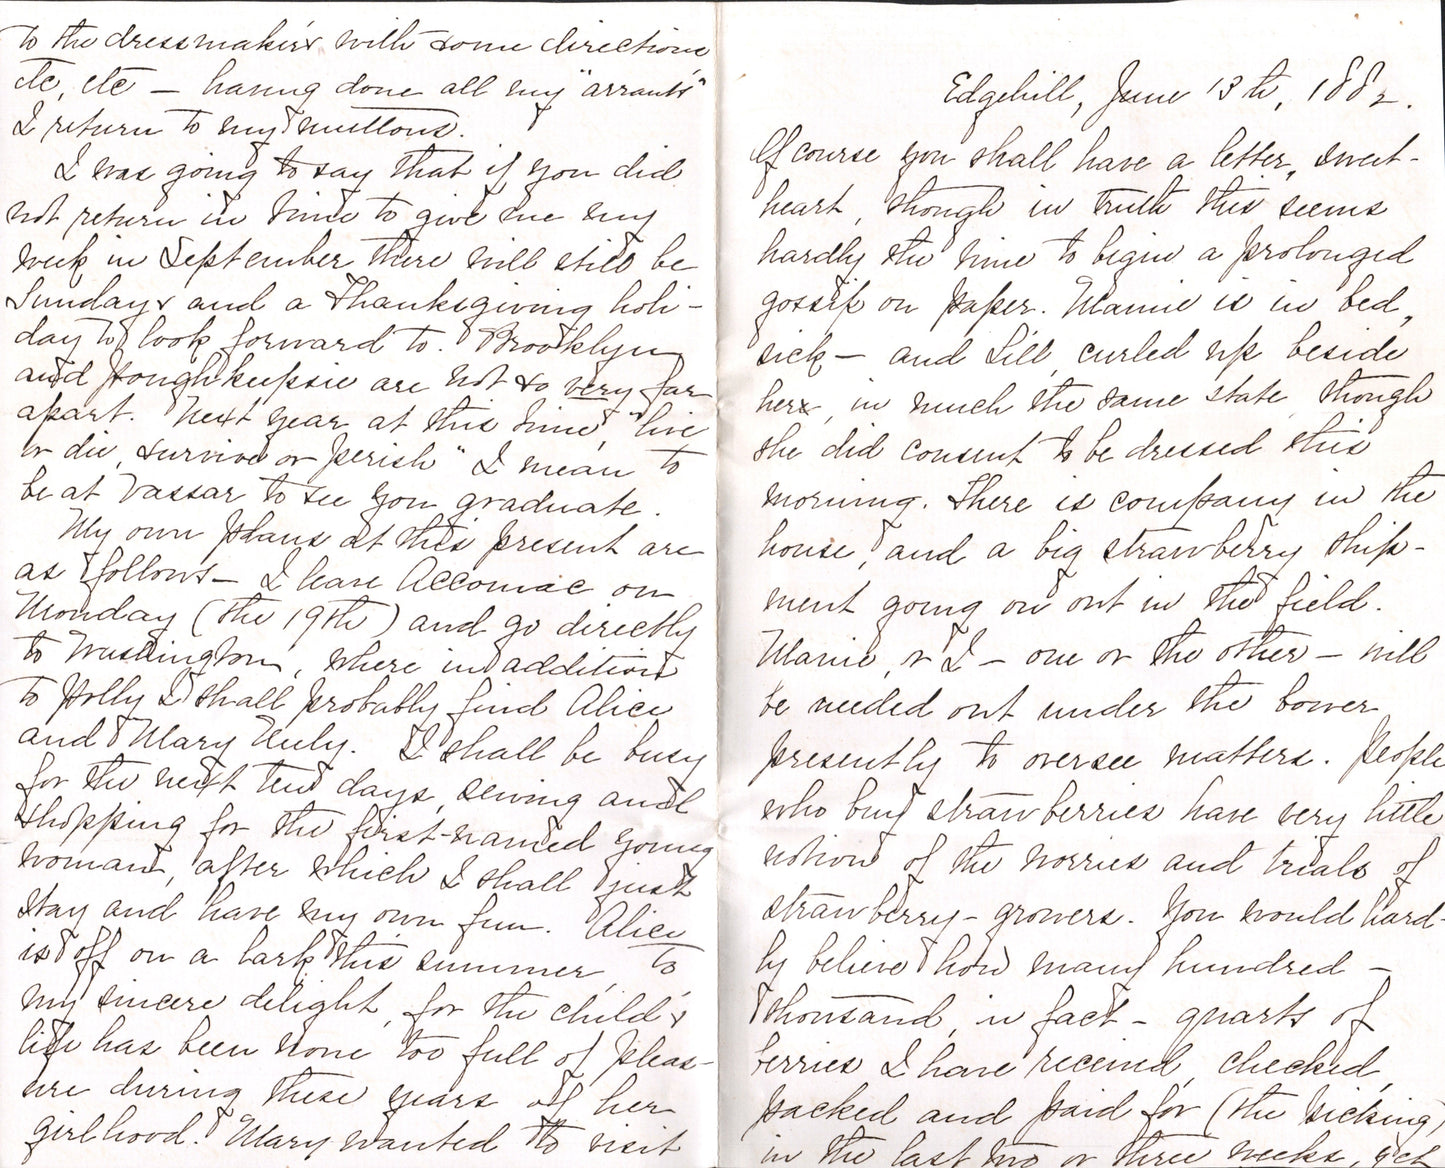 to the dressmaker's with some directions
etc, etc — having done all my "arrants"
I return to my muttons.
I was going to say that if you did
not return in time to give me my
week in September there will still be
Sundays and a Thanksgiving holi-
day to look forward to. Brooklyn
and Poughkeepsie are not so very far
apart. Next year at this time, "live
or die, survive or perish" I mean to
be at Vassar to see you graduate.
My own plans at this present are
as follows — I leave Accomac on
Monday (the 19th) and go directly
to Washington, where in addition
to Polly I shall probably find Alice
and Mary Neely. I shall be busy
for the next ten days, sewing and
shopping for the first-named young
woman, after which I shall just
stay and have my own fun. Alice
is off on a lark this summer, to
my sincere delight, for the child's
life has been none too full of pleas-
ure during these years of her
girlhood. Mary wanted to visit
Edgehill, June 13th, 1882.
Of course you shall have a letter, sweet-
heart, though in truth this seems
hardly the time to begin a prolonged
gossip on paper. Mamie is in bed,
sick — and Lill, curled up beside
her, in much the same state though
she did consent to be dressed this
morning. There is company in the
house, and a big strawberry ship-
ment going on out in the field.
Mamie, or I — one or the other — will
be needed out under the bower
presently to oversee matters. People
who buy strawberries have very little
notion of the worries and trials of
strawberry-growers. You would hard-
ly believe how many hundred —
thousand, in fact — quarts of
berries I have received, checked,
packed and paid for (the picking)
in the last two or three weeks, yet